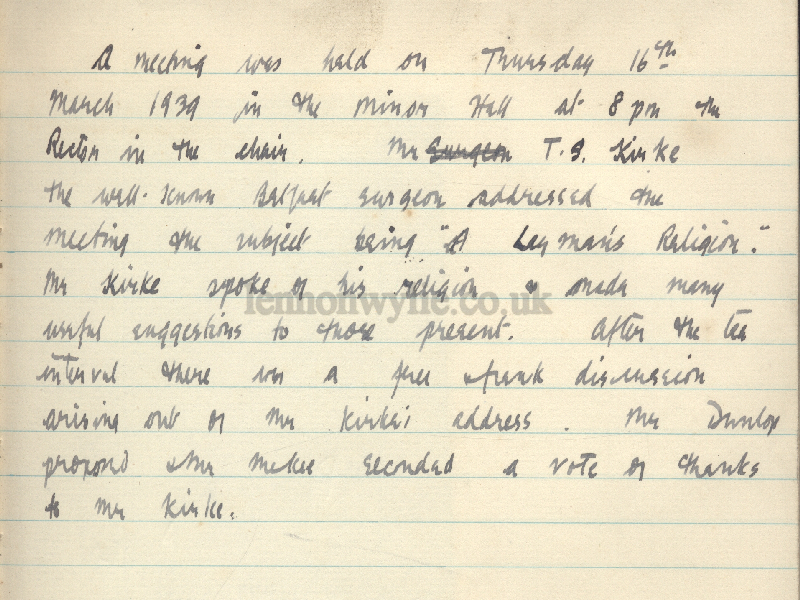 A meeting was held on Thursday 16th
March 1939 in the Minor Hall at 8 pm the
Rector in the chair. Mr Surgeon T. S. Kirke
the well-known Belfast surgeon addressed the
meeting the subject being "A Layman's Religion."
Mr Kirke spoke of his religion & made many
lennonwylie.co.uk
useful suggestions to those present. After the tea
interval there was a free & frank discussion
arising out of Mr Kirke's address. Mr Dunlop
proposed & Mr McKee seconded a vote of thanks
to Mr Kirke.